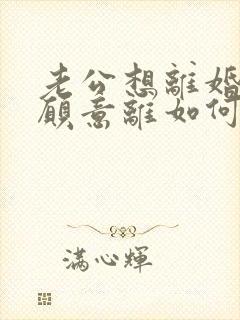 老公想離婚
願意離如何
滿心輝